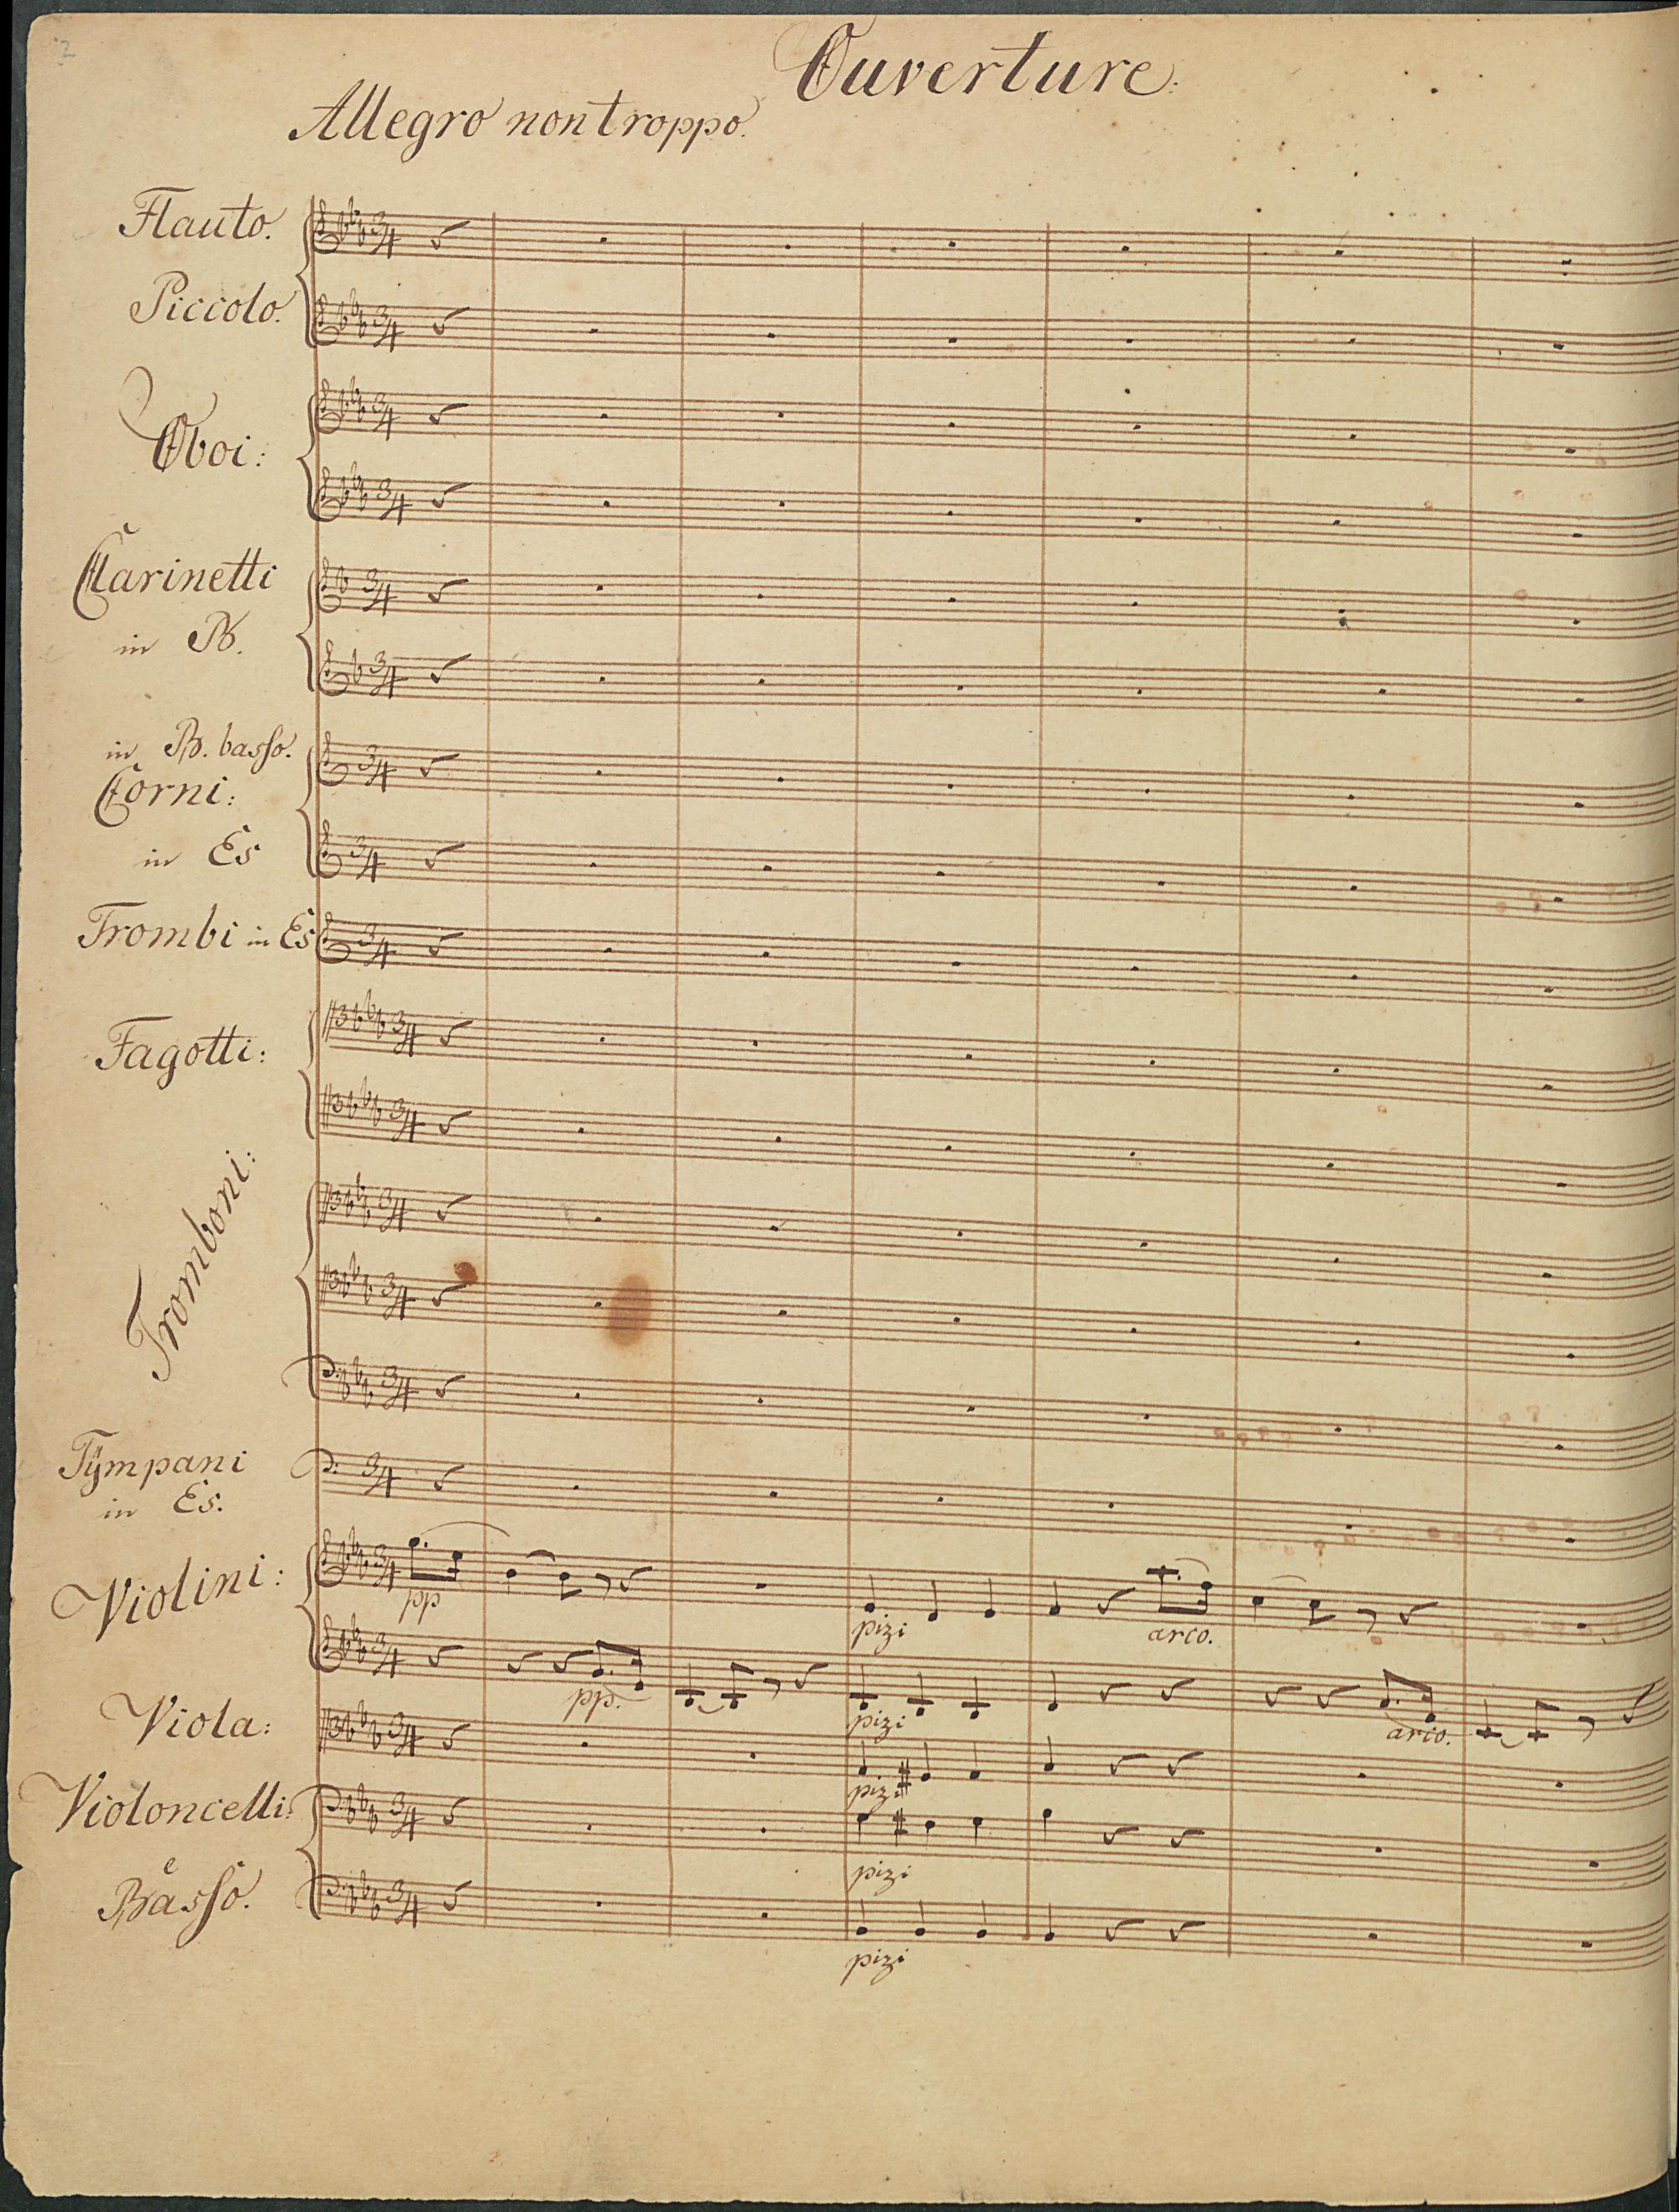 2
Ouverture.
Allegro non troppo.
Flauto.
Piccolo.
Oboi:
Clarinetti
in B.
in B. basso.
Corni:
in Es
Trombi in Es
Fagotti:
Tromboni:
Tympani
in Es.
Violini:
pp
pizi
arco.
pp.
pizi
arco.
Viola:
pizi
Violoncelli:
pizi
e
Basso.
pizi